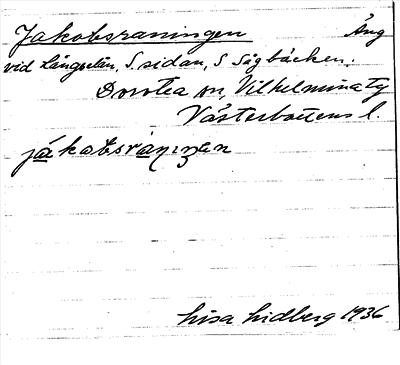 Jakobsraningen Äng
vid Långselån, S. sidan, S Sågbäcken.
Dorotea sn, Vilhelmina tg
Västerbottens l.
jákobsranıŋan
Lisa Lidberg 1936